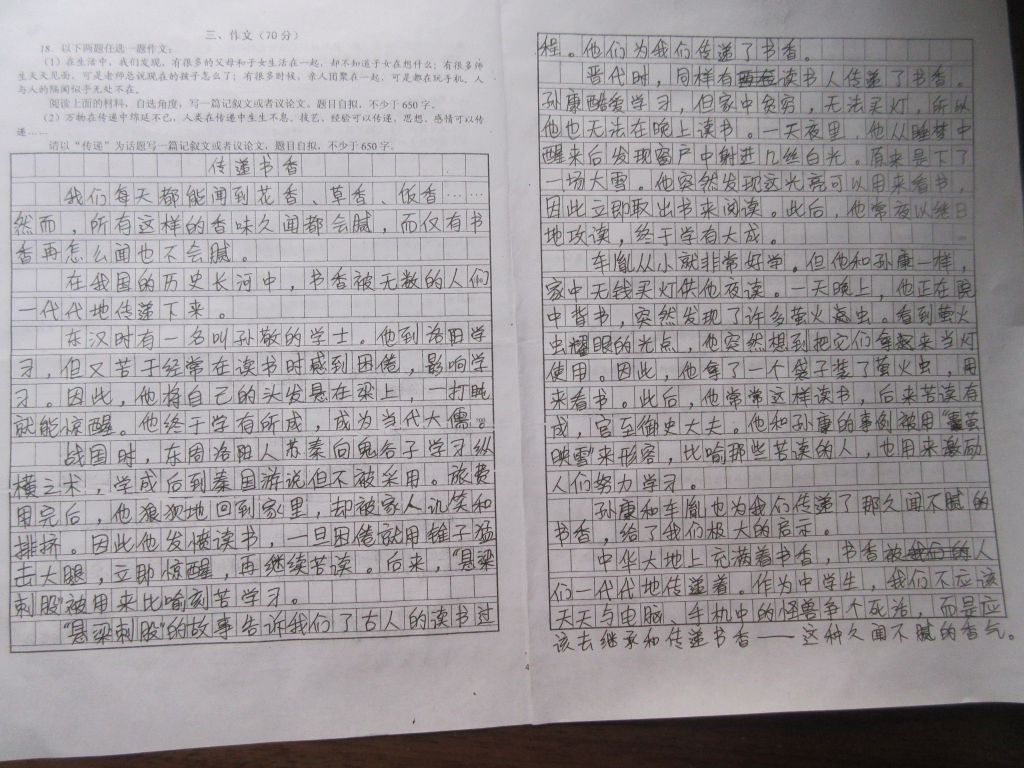 三、作文（70分）
18. 以下两题任选一题作文：
（1）在生活中，我们发现，有很多的父母和子女生活在一起，却不知道子女在想什么；有很多师
生天天见面，可是老师总说现在的孩子怎么了；有很多时候，亲人团聚在一起，可是都在玩手机，人
与人的隔阂似乎无处不在。
阅读上面的材料，自选角度，写一篇记叙文或者议论文。题目自拟，不少于650字。
（2）万物在传递中绵延不已，人类在传递中生生不息。技艺、经验可以传递，思想、感情可以传
递……
请以“传递”为话题写一篇记叙文或者议论文，题目自拟，不少于650字。
传递书香
我们每天都能闻到花香、草香、饭香……
然而，所有这样的香味久闻都会腻，而仅有书
香再怎么闻也不会腻。
在我国的历史长河中，书香被无数的人们
一代代地传递下来。
东汉时有一名叫孙敬的学士。他到洛阳学
习，但又苦于经常在读书时感到困倦，影响学
习。因此，他将自己的头发悬在梁上，一打盹
就能惊醒。他终于学有所成，成为当代大儒。
战国时，东周洛阳人苏秦向鬼谷子学习纵
横之术，学成后到秦国游说但不被采用。旅费
用完后，他狼狈地回到家里，却被家人讥笑和
排挤。因此他发愤读书，一旦困倦就用锥子猛
击大腿，立即惊醒，再继续苦读。后来，“悬梁
刺股”被用来比喻刻苦学习。
“悬梁刺股”的故事告诉我们了古人的读书过
程。他们为我们传递了书香。
晋代时，同样有读书人传递了书香。
孙康酷爱学习，但家中贫穷，无法买灯，所以
他也无法在晚上读书。一天夜里，他从睡梦中
醒来后发现窗户中射进几丝白光。原来是下了
一场大雪。他突然发现这光亮可以用来看书，
因此立即取出书来阅读。此后，他常夜以继日
地攻读，终于学有大成。
车胤从小就非常好学。但他和孙康一样，
家中无钱买灯供他夜读。一天晚上，他正在院
中背书，突然发现了许多萤火虫。看到萤火
虫耀眼的光点，他突然想到把它们拿起来当灯
使用。因此，他拿了一个袋子装了萤火虫，用
来看书。此后，他常常这样读书，后来苦读有
成，官至御史大夫。他和孙康的事例被用“囊萤
映雪”来形容，比喻那些苦读的人，也用来激励
人们努力学习。
孙康和车胤也为我们传递了那久闻不腻的
书香，给了我们极大的启示。
中华大地上充满着书香，书香被人
们一代代地传递着。作为中学生，我们不应该
天天与电脑、手机中的怪兽争个死活，而是应
该去继承和传递书香——这种久闻不腻的香气。
4